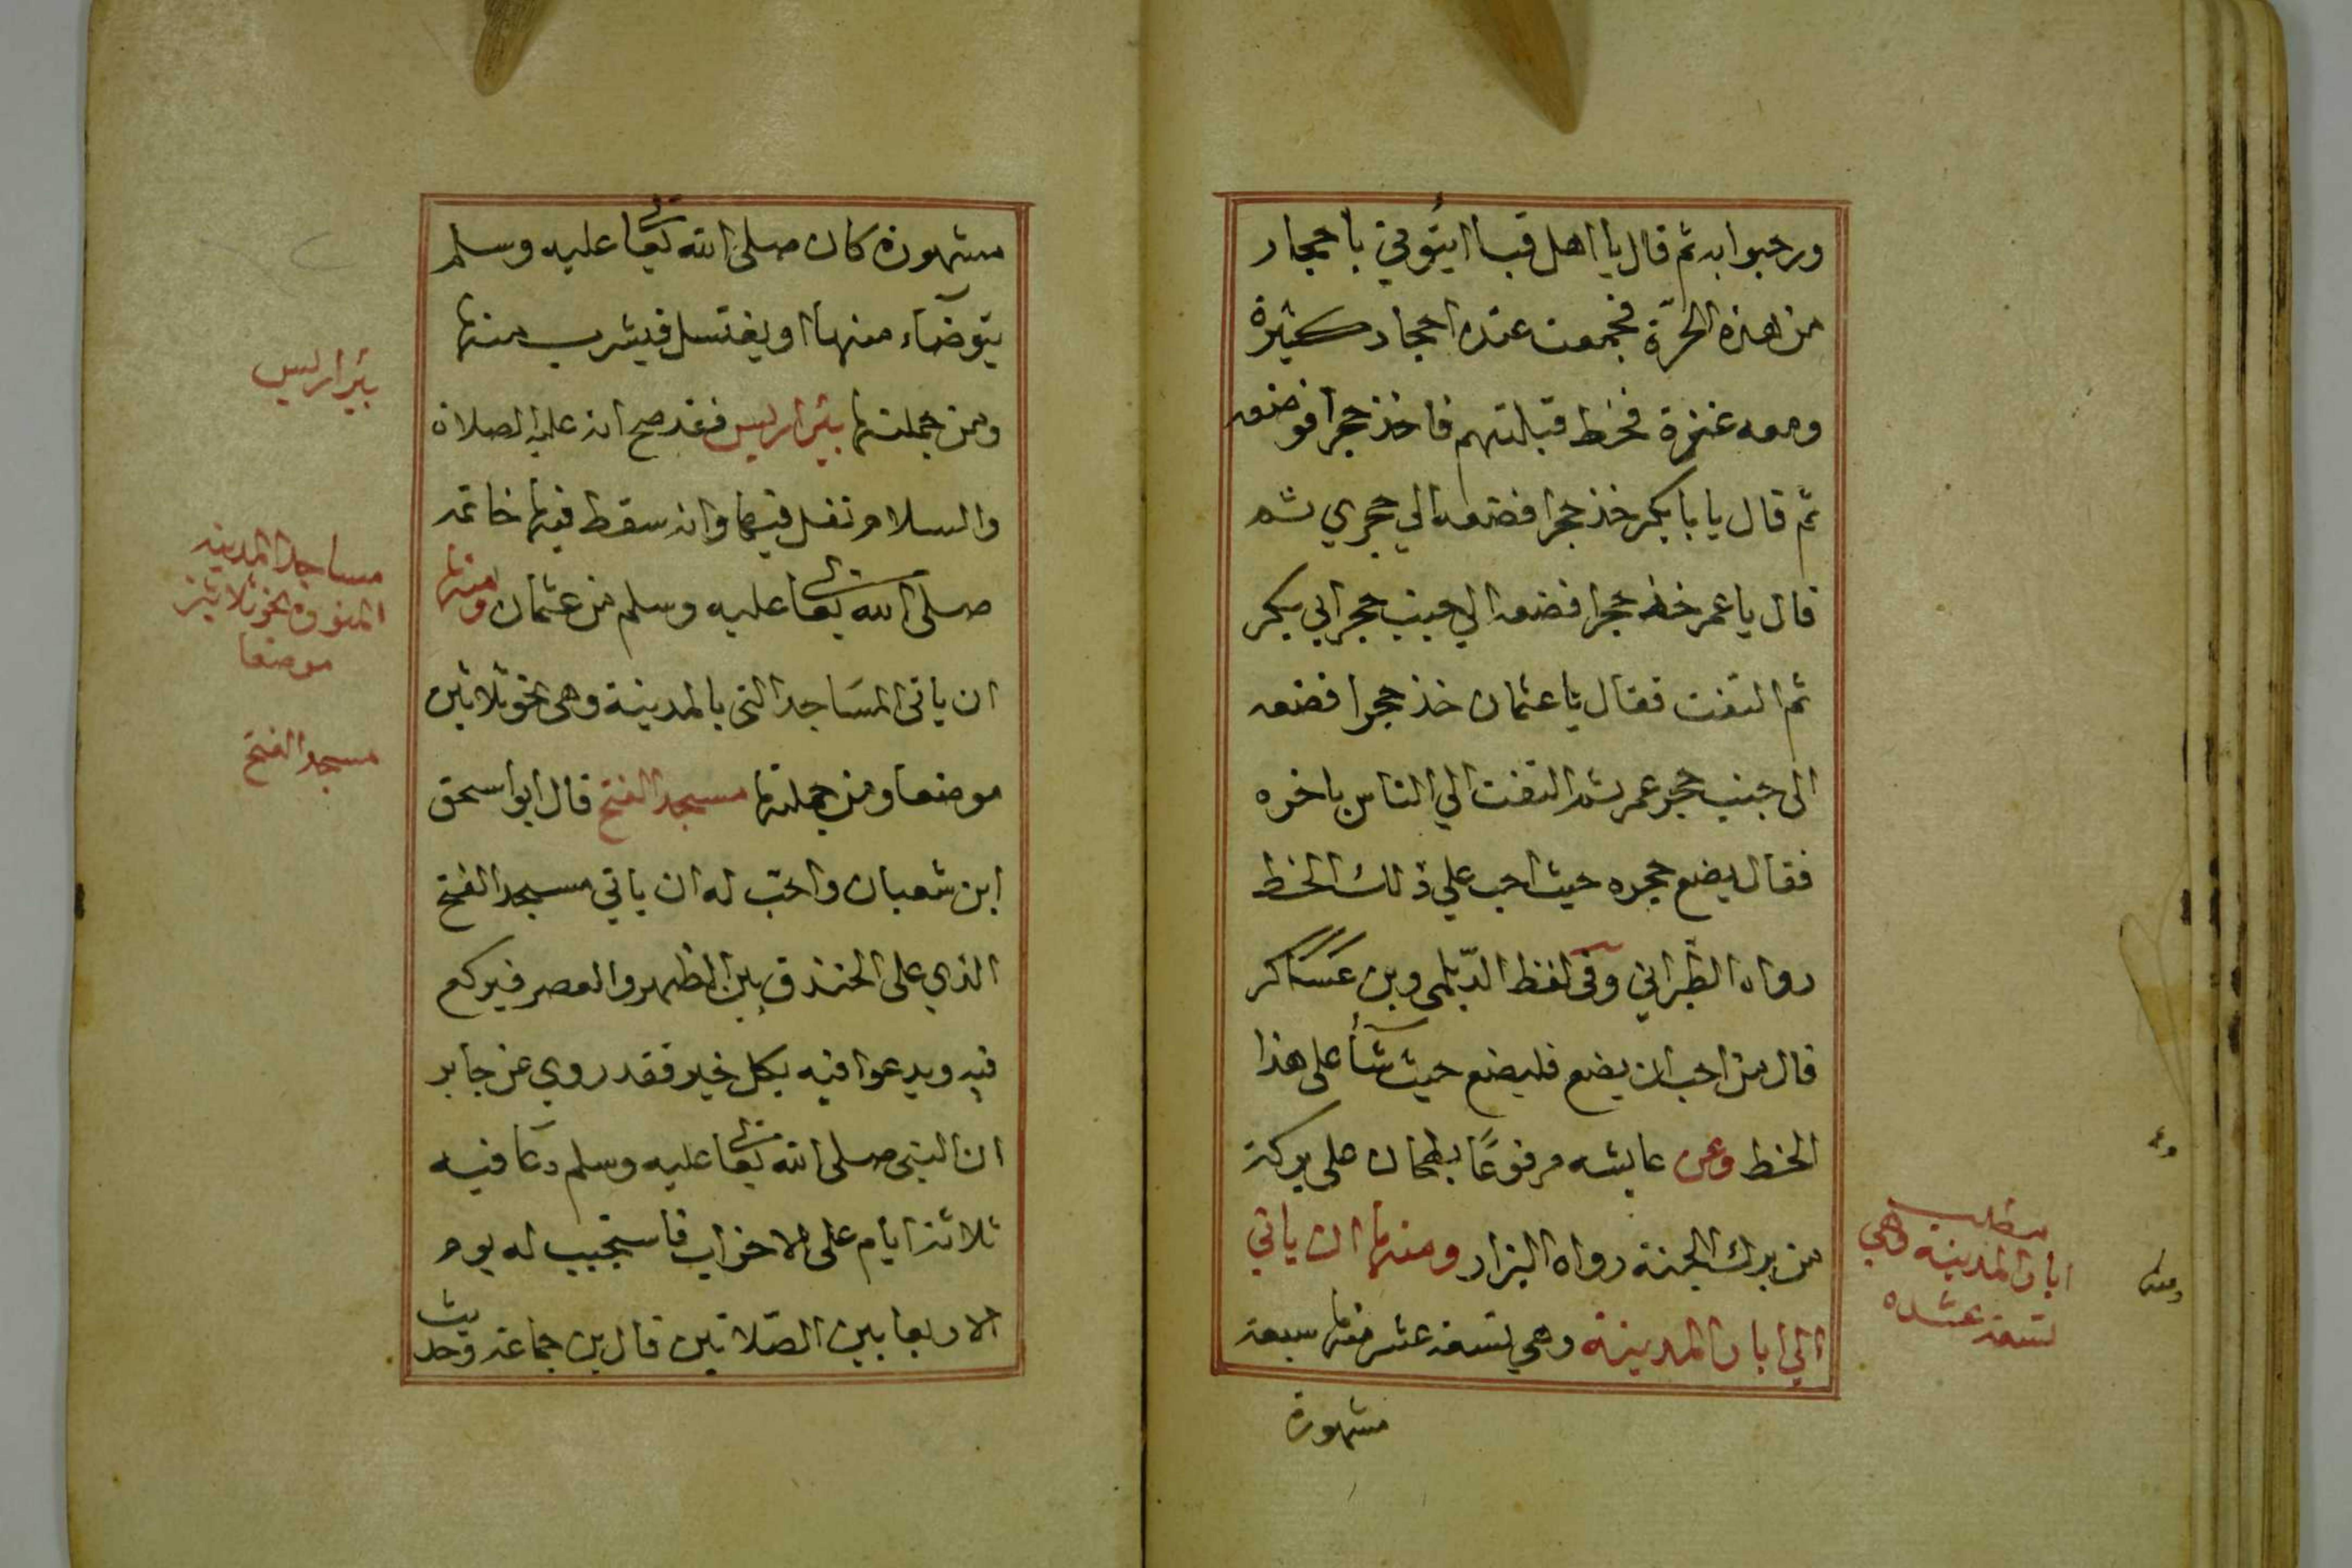 ورحبوا به ثم قال يا اهل قبا ايتوني باحجار
من هذه الحرّة فجمعت عنده احجار كثيرة
ومعه عنزة فخط قبلتهم فاخذ حجرا فوضعه
ثم قال يا بابكر خذ حجرا فضعه الي حجري ثم
قال يا عمر خذ حجرا فضعه الي جنب حجر ابي بكر
ثم التفت فقال يا عثمان خذ حجرا فضعه
الى جنب حجر عمر ثم التفت الي الناس باخره
فقال يضع حجره حيث احب علي ذلك الخط
رواه الطبراني وفي لفظ الدّيلمي وبن عساكر
قال من احب ان يضع فليضع حيث شآأ على هذا
الخط وعن عايشه مرفوعًا بطحان على بركة
من برك الجنة رواه البزار ومنها ان ياتي
الي ابار المدينة وهي تسعة عشر منها سبعة
مشهورة
مطلب
ابار المدينة وهي
تسعة عشره
مشهورة كان صلى الله تعا عليه وسلم
يتوضآء منها او يغتسل فيشرب منها
ومن جملتها بئر اريس فقد صح انه عليه الصلاة
والسلام تفل فيها وانه سقط فيها خاتمه
صلى الله تعا عليه وسلم من عثمان ومنها
ان ياتى المسَاجد التى بالمدينة وهى نحو ثلاثين
موضعا ومن جملتها مسجد الفتح قال ابو اسحق
ابن شعبان واحبّ له ان ياتي مسجد الفتح
الذي على الخندق بين الظهر والعصر فيركع
فيه ويدعوا فيه بكل خير فقد روي عن جابر
ان النبي صلى الله تعا عليه وسلم دعا فيه
ثلاثة ايام على الاحزاب فاستجيب له يوم
الاربعا بين الصّلاتين قال بن جماعة وحديث
بئر اريس
مساجد المدينه
المنوره نحو ثلاثين
موضعا
مسجد الفتح